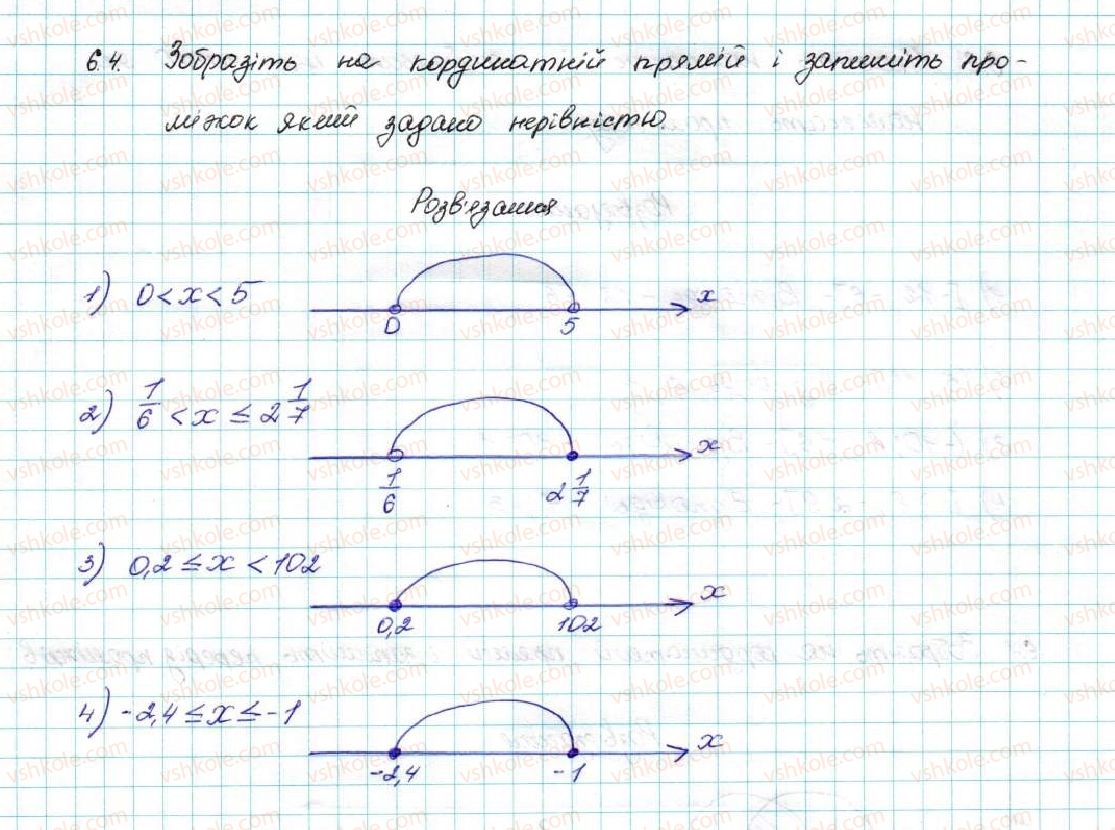 6.4. Зобразіть на кординатній прямій і запишіть про-
міжок який задано нерівністю.
Розв'язання
1) 0 < x < 5
x
0 5
2) 1/6 < x ≤ 2 1/7
x
1/6 2 1/7
3) 0,2 ≤ x < 102
x
0,2 102
4) -2,4 ≤ x ≤ -1
x
-2,4 -1
vshkole.com